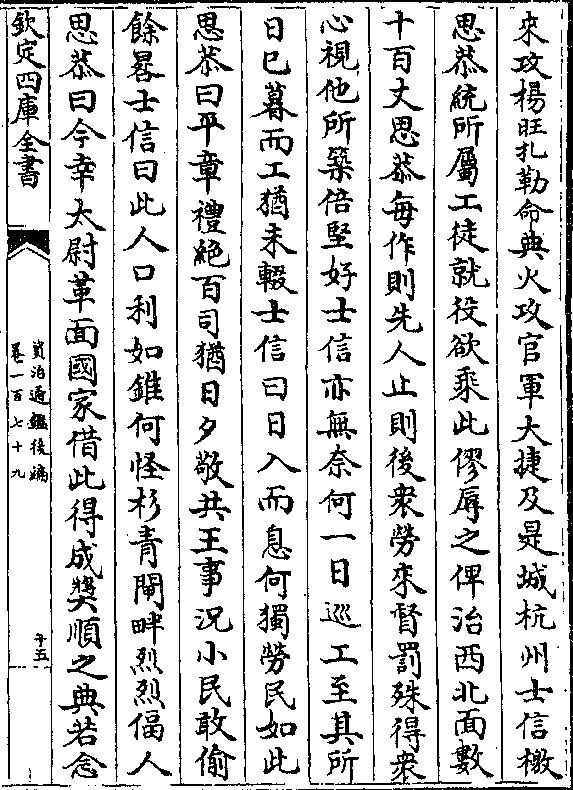 來攻楊旺扎勒命典火攻官軍大捷及是城杭州士信檄
思恭統所屬工徒就役欲乘此僇辱之俾治西北面數
十百丈思恭每作則先人止則後衆勞來督罰殊得衆
心視他所築倍堅好士信亦無奈何一日巡工至其所
日已暮而工猶未輟士信曰日入而息何獨勞民如此
思恭曰平章禮絶百司猶日夕敬共王事況小民敢偷
餘晷士信曰此人口利如錐何怪杉青閘畔烈烈偪人
思恭曰今幸太尉革面國家借此得成奬順之典若念
欽定四庫全書
資治通鑑後編
卷一百七十九
十五